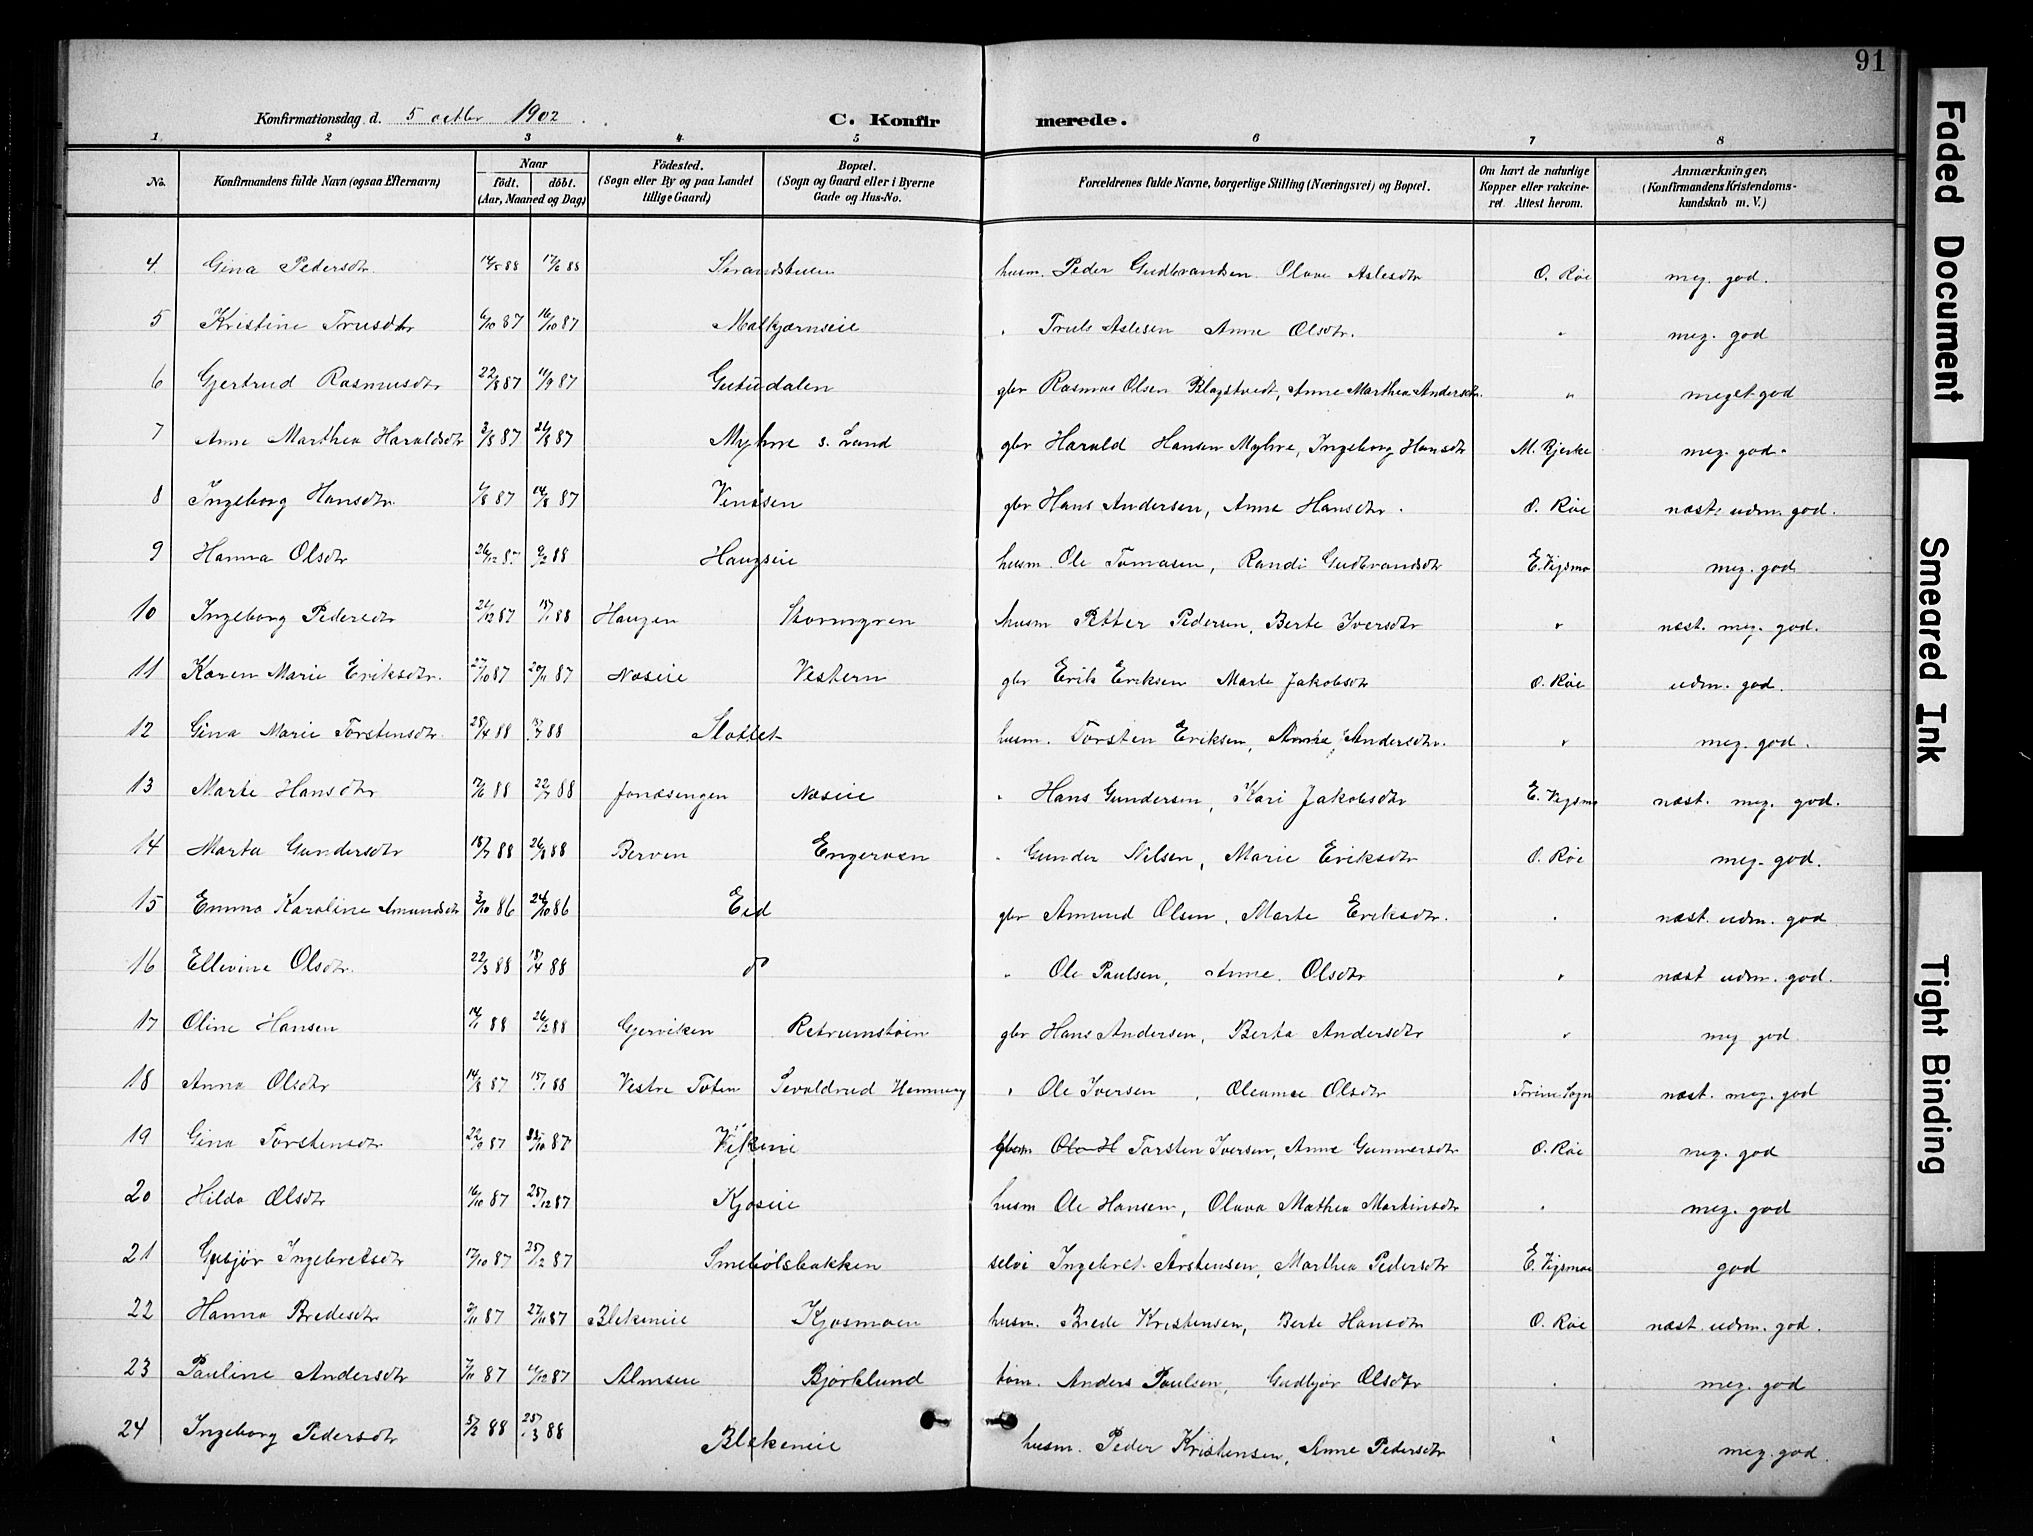 91
Konfirmationsdag d. 5 octbr 1902. C. Konfirmerede.
1. 2 3 4. 5 6 7 8
No. Konfirmandens fulde Navn (ogsaa Efternavn) Naar født. døbt. (Aar, Maaned og Dag) Fødested. (Sogn eller By og paa Landet tillige Gaard) Bopæl. (Sogn og Gaard eller i Byerne Gade og Hus-No. Forældrenes fulde Navne, borgerlige Stilling (Næringsvei) og Bopæl. Om havt de naturlige Kopper eller vakcineret. Attest herom. Anmærkninger. (Konfirmandens Kristendomskundskab m. V.)
4. Gina Pedersdtr 88 88 Strandstuen husm. Peder Gudbrandsen Olava Aslesdtr O. Røe meg. god.
5 Kristine Trulsdtr 6/10 87 16/10 87 " Truls Aslesen Anne Olsdtr. " meg. god
6 Gjertrud Rasmusdtr 22/8 87 11/9 87 gbr Rasmus Olsen Anne Marthea Andersdtr. " meget god
7 Anne Marthea Haraldsdtr 3/8 87 21/8 87 Myhre s. Land gbr Harald Hansen Myhre, Ingeborg Hansdtr M. Bjerke meg. god.
8 Ingeborg Hansdtr. 87 14/8 87 gbr Hans Andersen, Anne Hansdtr. O. Røe næst. udm. god.
9 Hanna Olsdtr 26/12 87 9/2 88 Haugseie husm. Ole Tomasen, Randi Gudbrandsdtr E. Vigsmo meg. god
10 Ingeborg Pedersdtr 21/12 87 15/1 88 Haugen Stormyren husm Petter Pedersen, Berte Iversdtr " næst. meg. god.
11 Karen Marie Eriksdtr. 27/10 87 20/11 87 Næseie Vestern gbr Erik Eriksen Marte Jakobsdtr O. Røe udm. god.
12 Gina Marie Torstensdtr. 28/4 88 88 Slottet husm. Torsten Eriksen, Andersdtr. " meg. god.
13 Marte Hansdtr 17/6 88 22/7 88 Jonasengen Næseie " Hans Gundersen, Kari Jakobsdtr E. Vigsmo næst. meg. god.
14 Marta Gundersdtr 18/7 88 26/8 88 Berven Engeroen " Gunder Nilsen, Marie Eriksdtr O. Røe meg. god.
15 Emma Karoline Amundsdtr 3/10 86 24/10 86 Eid gbr Amund Olsen, Marte Eriksdtr. " næst. udm. god
16 Ellevine Olsdtr. 22/3 88 15/4 88 do " Ole Paulsen, Anne Olsdtr " næst udm. god.
17 Oline Hansen 14/1 88 26/2 88 Gjerviken Retrumstøen gbr Hans Andersen, Berta Andersdtr " meg god
18 Anna Olsdtr 14/8 87 15/1 88 Vestre Toten Sevaldrud Hemmeng " Ole Iversen, Olsdtr næst. meg. god
19 Gina Torstensdtr 22/9 87 /10 87 Torsten Iversen, Anne Gunnersdtr O. Røe meg. god
20 Hilda Olsdtr 16/10 87 25/12 87 Kjøseie husm Ole Hansen, Olava Mathea Martinsdtr " meg. god
21 Gubjør Ingebretsdtr 17/10 87 25/12 87 Smebølsbakken selve Ingebret Arstensen, Marthea Pedersdtr E. Vigsmoe god
22 Hanna Bredesdtr 87 27/11 87 Blekeneie Kjosmoen husm. Brede Kristensen, Berte Hansdtr O. Røe næst. udm. god.
23 Pauline Andersdtr 7/11 87 11/12 87 Almseie Bjørklund tøm. Anders Paulsen, Gudbjør Olsdtr " meg. god
24 Ingeborg Pedersdtr 5/2 88 25/3 88 Blekeneie husm. Peder Kristensen, Anne Pedersdtr " meg. god.
Faded Document
Smeared Ink
Tight Binding